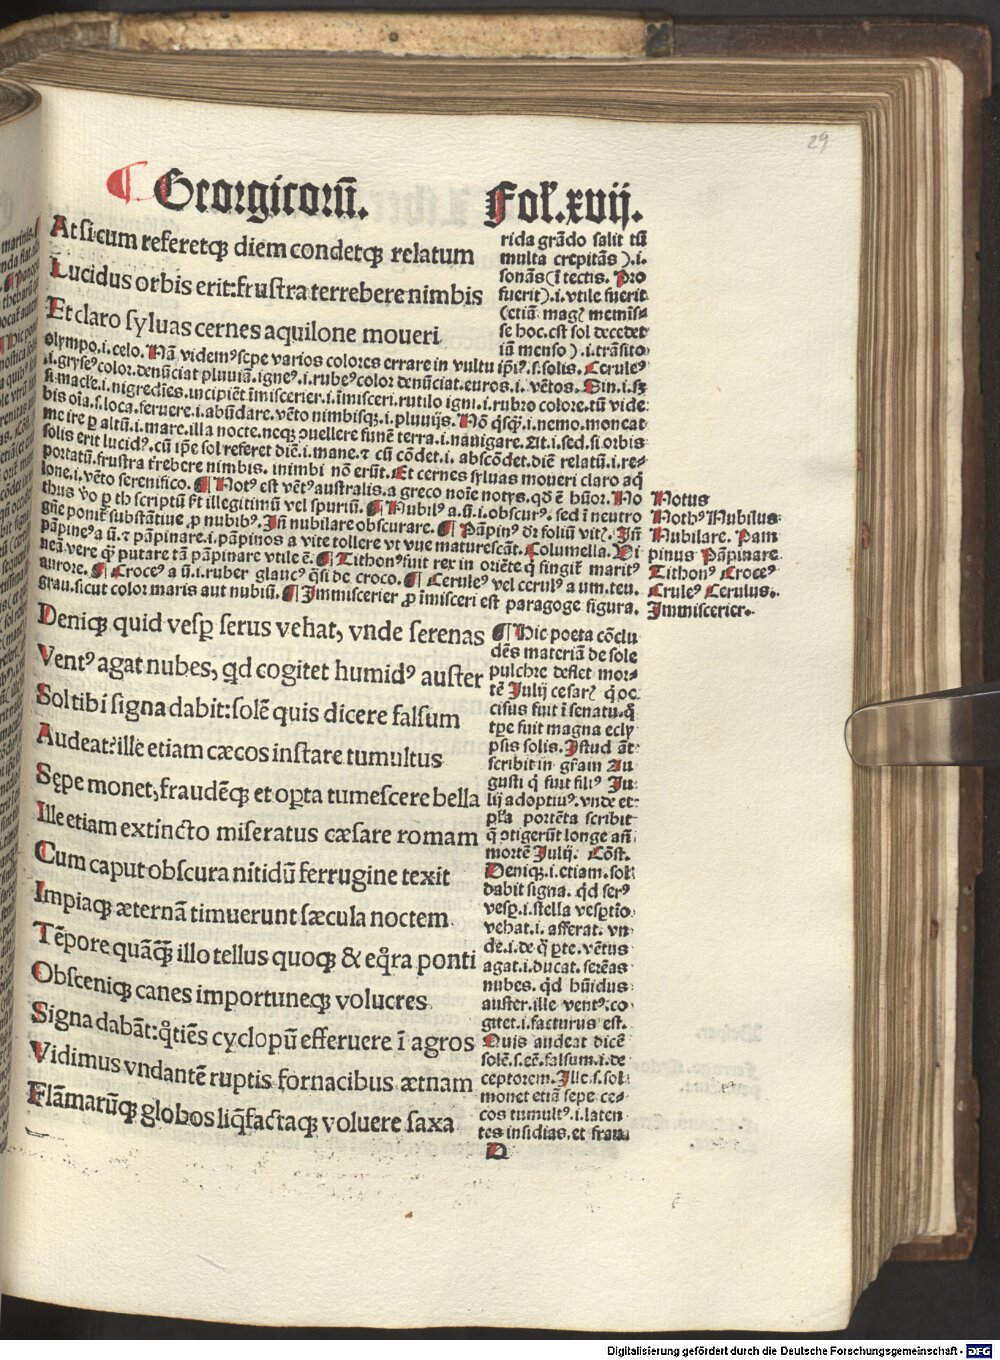 29
¶ Georgicorū.
Fol. xvij.
At si cum referetq̨ diem condetq̨ relatum
Lucidus orbis erit: frustra terrebere nimbis
Et claro syluas cernes aquilone moueri
rida grādo salit tū
multa crepitās ).i.
sonās (ī tectis. Pro
fuerit).i.vtile fuerit
(etiā magꝭ meminis⸗
se hoc.est sol decedet
iā menso ).i.trāsito
olympo.i.celo. Nā videmꝰ sepe varios colores errare in vultu ip̄iꝰ.s.solis. Ceruleꝰ
.i.gryseꝰ color.denūciat pluuiā.igneꝰ.i.rubeꝰ color denūciat.euros.i.vētos. Sin.i.sꝫ
si macle.i.nigredies.incipiēt īmiscerier.i.īmisceri.rutilo igni.i.rubro colore.tū vide
bis oīa.s.loca.feruere.i.abūdare.vēto nimbisqꝫ.i.pluuijs. Nō q̄sq̄ꝫ.i.nemo.moneat
me ire ꝑ altū.i.mare.illa nocte.neqꝫ ꝯuellere funē terra.i.nauigare. At.i.sed.si orbis
solis erit lucidꝰ.cū ip̄e sol referet diē.i.mane.⁊ cū cōdet.i.abscōdet.diē relatū.i.re⸗
portatū.frustra t̄rebere nimbis.inimbi nō erūt. Et cernes syluas moueri claro aq̄
lone.i.vēto serenifico. ¶ Notꝰ est vētꝰ australis.a greco noīe notys.qđ ē hūor. No
thus v̄o ꝑ th scriptū s̄t illegitimū vel spuriū. ¶ Nubilꝰ a.ū.i.obscurꝰ. sed ī neutro
gn̄e ponit̄ substātiue ꝓ nubibꝰ. Iñ nubilare obscurare. ¶ Pāpinꝰ dr̄ foliū vitꝭ. Iñ
pāpineꝰ a ū.⁊ pāpinare.i.pāpinos a vite tollere vt vue maturescāt. Columella. Vi
neā vere q̄ꝫ putare tā pāpinare vtile ē. ¶ Tithonꝰ fuit rex in oriēte q̄ fingit̄ maritꝰ
aurore. ¶ Croceꝰ a ū.i.ruber glaucꝰ q̄si de croco. ¶ Ceruleꝰ vel cerulꝰ a um.teu.
grau.sicut color maris aut nubiū. ¶ Immiscerier ꝓ īmisceri est paragoge figura.
Notus
Nothꝰ Nubilus
Nubilare. Pam
pinus Pāpinare
Tithonꝰ Croceꝰ
Cruleꝰ Cerulus.
Immiscerier.
Deniq̨ quid vesꝑ serus vehat, vnde serenas
Ventꝰ agat nubes, qđ cogitet humidꝰ auster
Sol tibi signa dabit: solē quis dicere falsum
Audeat? ille etiam cæcos instare tumultus
Sępe monet, fraudēq̨ et oꝑta tumescere bella
Ille etiam extincto miseratus cæsare romam
Cum caput obscura nitidū ferrugine texit
Impiaq̨ æternā timuerunt sæcula noctem
Tēpore quāq̨ illo tellus quoq̨ & eq̄ra ponti
Obsceniq̨ canes importuneq̨ volucres
Signa dabāt: q̊tiēs cyclopū efferuere ī agros
Vidimus vndantē ruptis fornacibus ætnam
Flāmarūq̨ globos liq̄factaq̨ voluere saxa
¶ Hic poeta cōclu
dēs materiā de sole
pulchre deflet mor⸗
tē Julij cesarꝭ q̊ oc
cisus fuit ī senatu.q̊
tp̄e fuit magna ecly
psis solis. Istud āt
scribit in gr̄am Au
gusti q̄ fuit filiꝰ Ju
lij adoptiuꝰ. vnde et
pl̄a portēta scribit
q̄ ꝯtigerūt longe añ
mortē Julij. Cōst.
Deniqꝫ.i.etiam.sol
dabit signa. qđ serꝰ
vesꝑ.i.stella vesꝑtio
vehat.i.afferat. vn
de.i.de q̄ ꝑte.vētus
agat.i.ducat.serēas
nubes. qđ hūidus
auster.ille ventꝰ.co
gitet.i.facturus est.
Quis audeat dicē
solē.s.eē.falsum.i.de
ceptorem. Ille.s.sol
monet etiā sepe ce⸗
cos tumultꝰ.i.laten
tes insidias.et frau
D
Digitalisierung gefördert durch die Deutsche Forschungsgemeinschaft - DFG